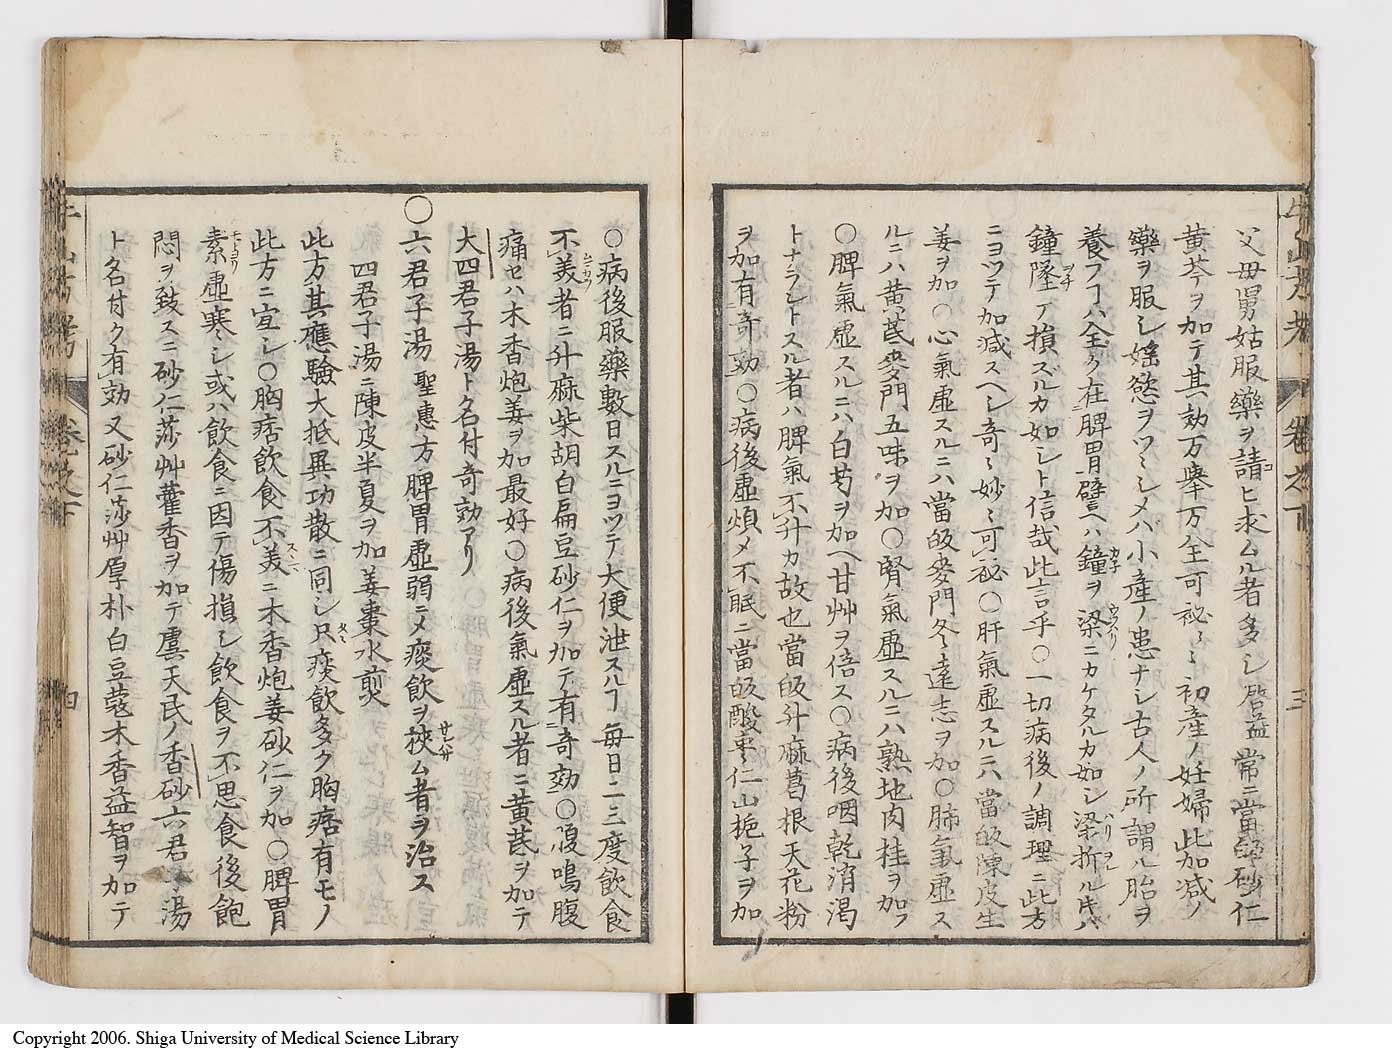 父母舅姑服藥ヲ請ヒ求ムル者多シ啓益常ニ當皈砂仁
黄芩ヲ加テ其効万擧万全可祕〻初産ノ妊婦此加減ノ
藥ヲ服シ婬慾ヲツヽシメバ小産ノ患ナシ古人ノ所謂ル胎ヲ
養フヿハ全ク在脾胃譬ヘハ鐘ヲ梁ニカケタルカ如シ梁折ル片ハ
鐘墜テ損ズルカ如シト信哉此言乎〇一切病後ノ調理ニ此方
ニヨツテ加減スヘシ奇〻妙〻可祕〇肝氣虚スルニハ當皈陳皮生
姜ヲ加〇心氣虚スルニハ當皈麥門冬遠志ヲ加〇肺氣虚ス
ルニハ黄芪麥門五味ヲ加〇腎氣虚スルニハ熟地肉桂ヲ加フ
〇脾氣虚スルニハ白芍ヲ加ヘ甘艸ヲ倍ス〇病後咽乾消渇
トナラントスル者ハ脾氣不升カ故也當皈升麻葛根天花粉
ヲ加有奇効〇病後虚煩メ不眠ニ當皈酸棗仁山梔子ヲ加
牛山方考 卷之下 三
〇病後服藥數日スルニヨツテ大便泄スルヿ毎日二三度飲食
不美者ニ升麻柴胡白扁豆砂仁ヲ加テ有奇効〇腹鳴腹
痛セハ木香炮姜ヲ加最好〇病後氣虚スル者ニ黄芪ヲ加テ
大四君子湯ト名付奇効アリ
〇六君子湯 聖惠方脾胃虚弱ニメ痰飲ヲ挾ム者ヲ治ス
四君子湯ニ陳皮半夏ヲ加姜棗水煎
此方其應驗大抵異功散ニ同シ只痰飲多ク胸痞有モノ
此方ニ宜シ〇胸痞飲食不美ニ木香炮姜砂仁ヲ加〇脾胃
素虚寒シ或ハ飲食ニ因テ傷損シ飲食ヲ不思食後飽
悶ヲ致スニ砂仁莎艸藿香ヲ加テ虞天民ノ香砂六君子湯
ト名付ク有効又砂仁莎艸厚朴白豆蔻木香益智ヲ加テ
牛山方考 卷之下 四
Copyright 2006. Shiga University of Medical Science Library